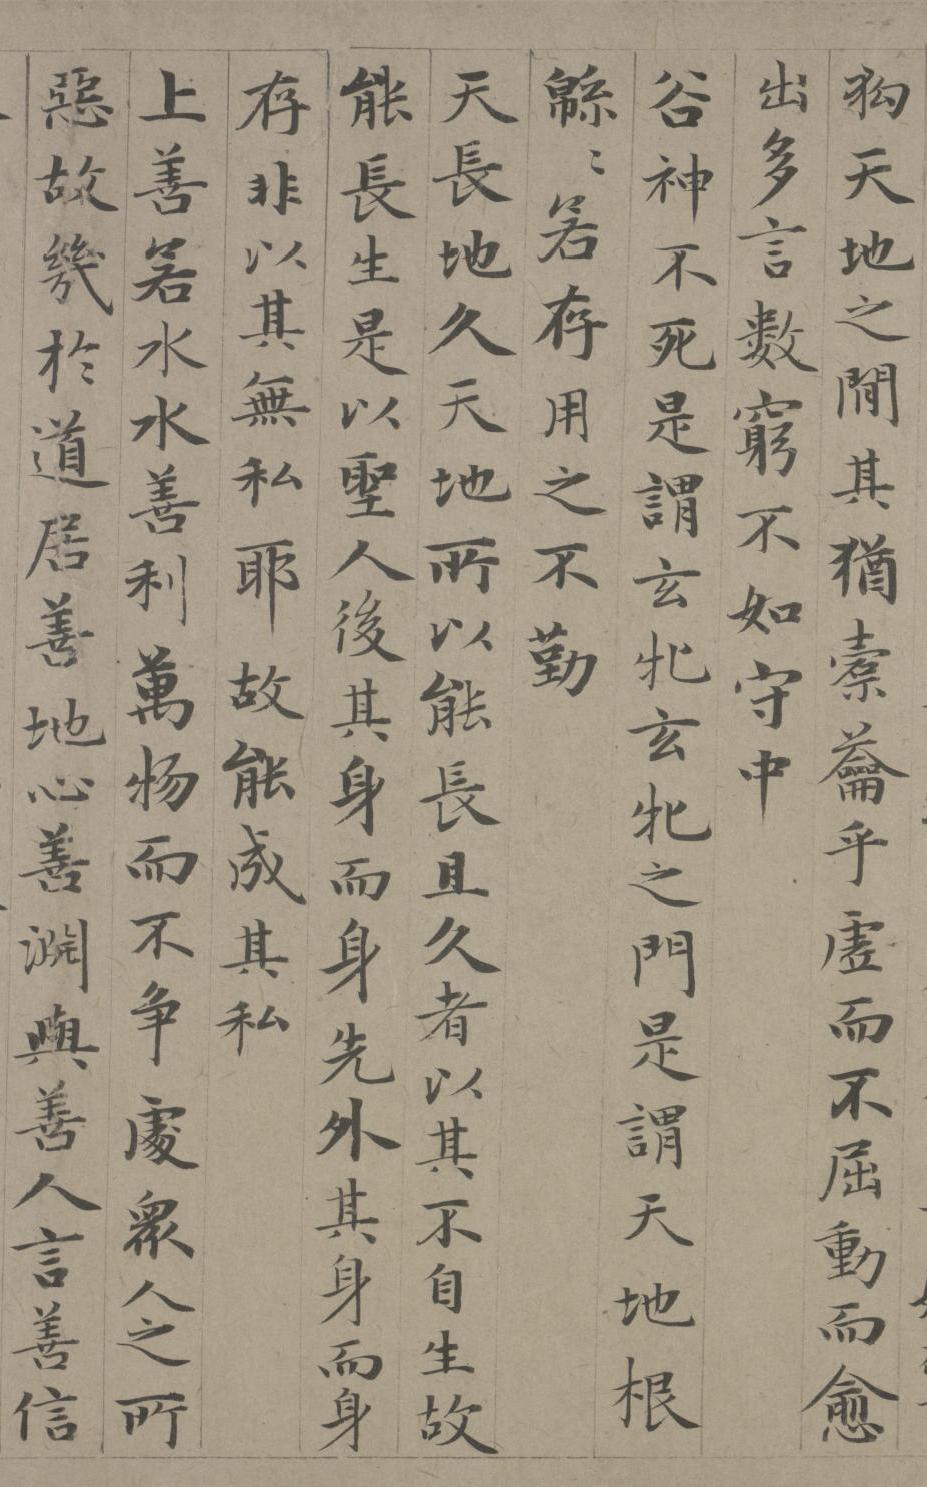 狗天地之間其猶橐籥乎虛而不屈動而愈
出多言數窮不如守中
谷神不死是謂玄牝玄牝之門是謂天地根
緜〻若存用之不勤
天長地久天地所以能長且久者以其不自生故
能長生是以聖人後其身而身先外其身而身
存非以其無私耶故能成其私
上善若水水善利萬物而不争處衆人之所
惡故幾於道居善地心善淵與善人言善信